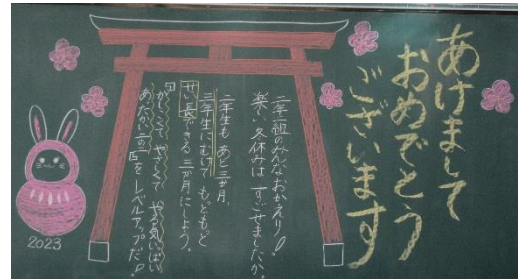 あけまして
おめでとう
ございます
二年一組のみんなおかえり！
楽しい冬休みはすごせましたか。
二年生もあと三か月。
三年生にむけてもっともっと
せい長できる三か月にしよう。
かしこくて やさしくて やる気いっぱい
あったかい二の一をレベルアップだ！
2023